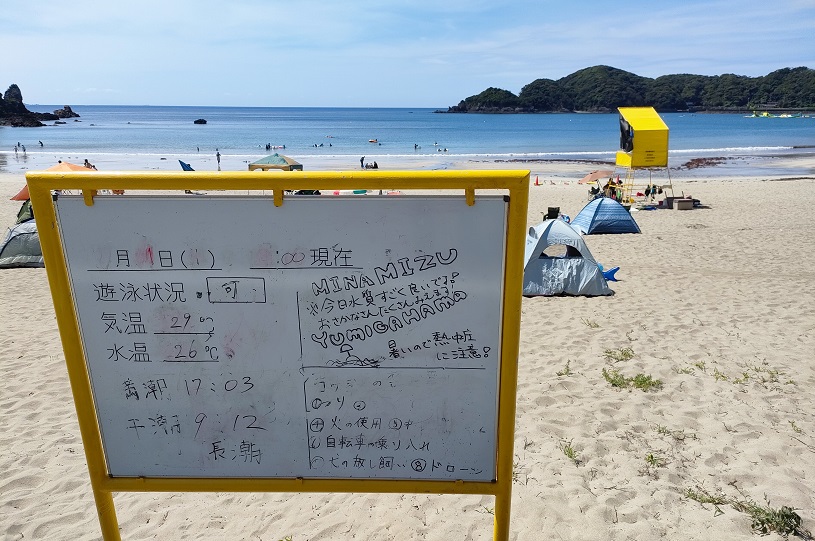 月 日( )
:00 現在
遊泳状況 可
気温 29℃
水温 26℃
満潮 17:03
干潮 9:12
長潮
MINAMIZU
※今日水質すごく良いです!
おさかなさんたくさんみえます!
YUMIGAHAMA
暑いので熱中症
に注意!
火の使用
自転車の乗り入れ
犬の放し飼い ⑧ドローン